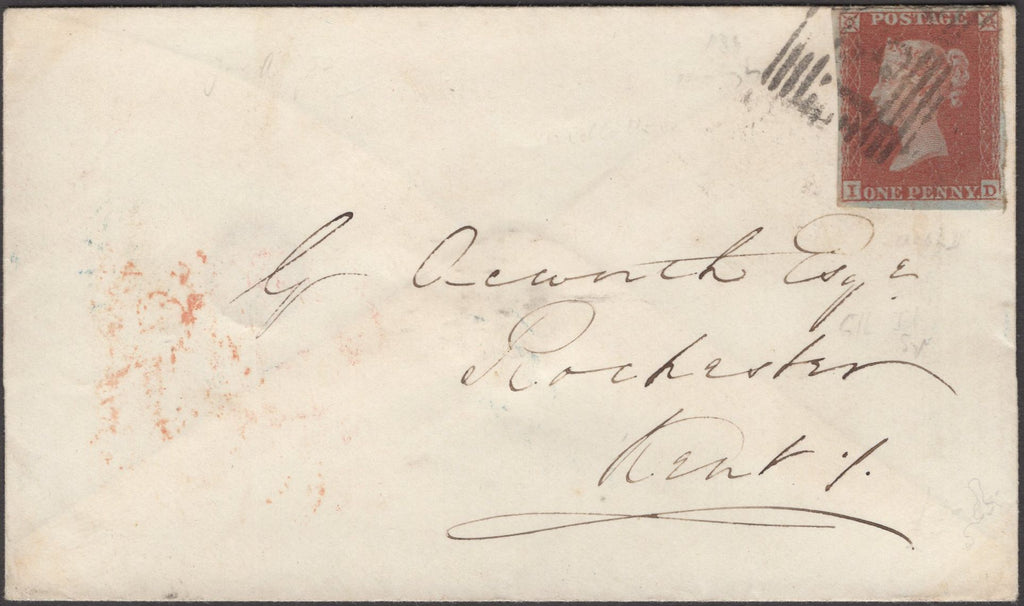 POSTAGE
I ONE PENNY. D
Gy Acworth Esqre
Rochester
Kent /.